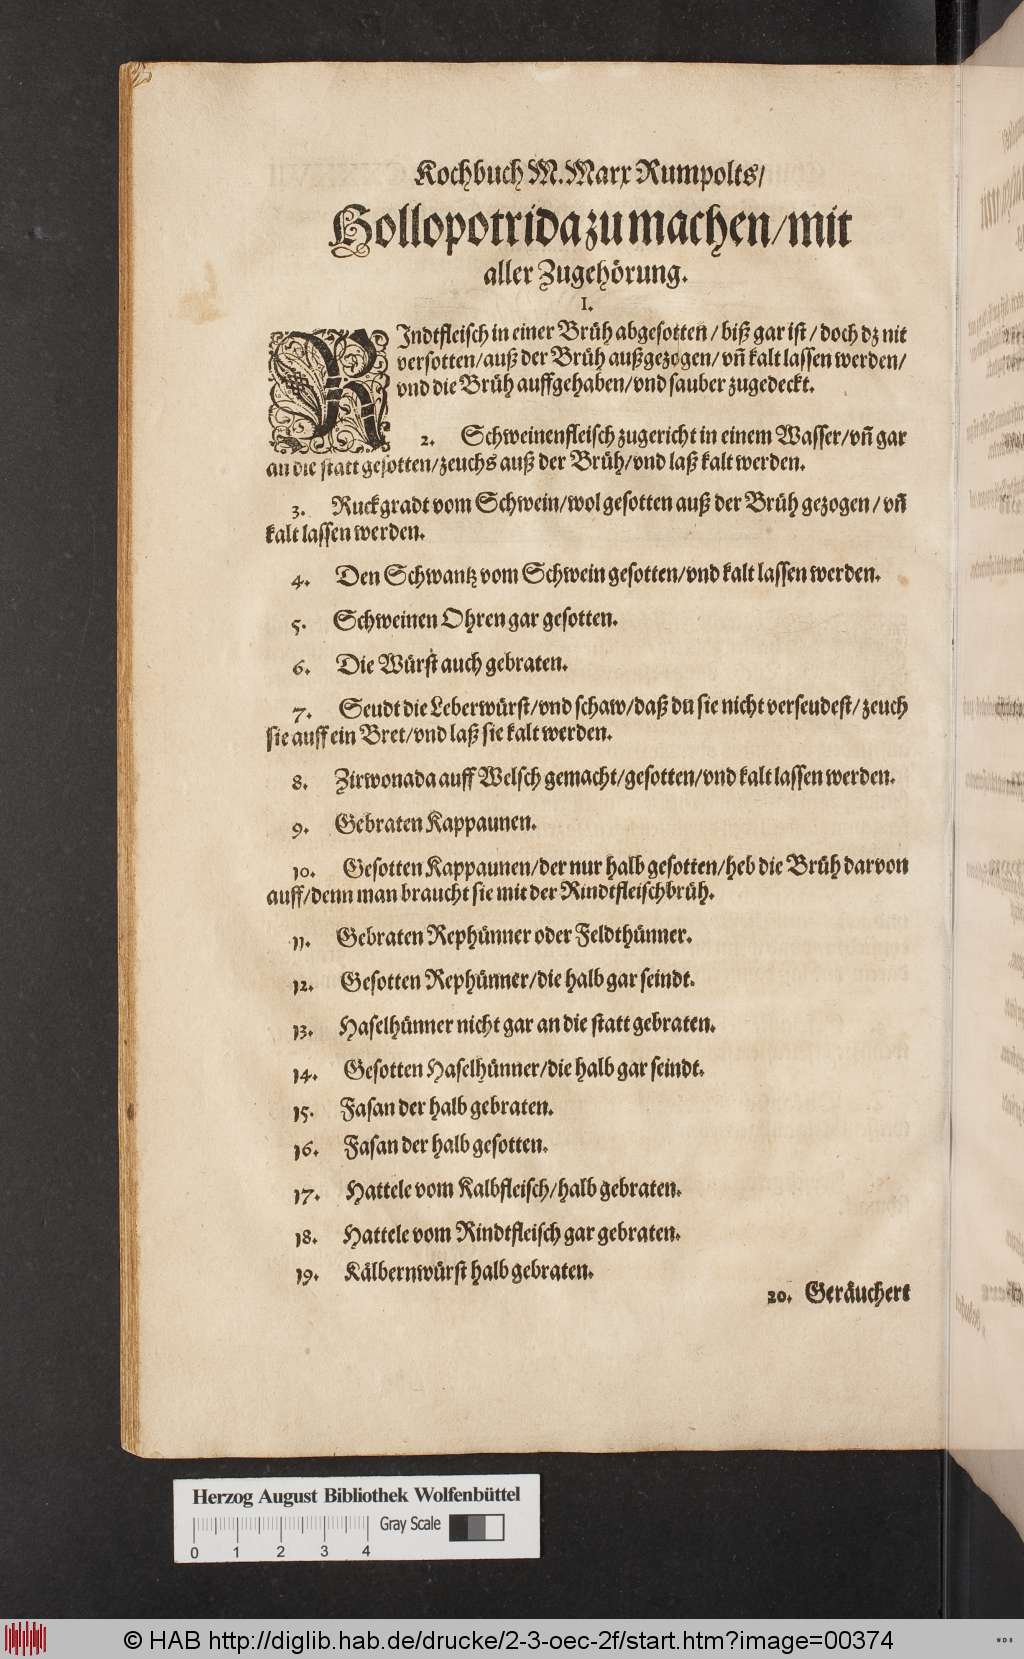 Kochbuch M. Marx Rumpolts/
Hollopotrida zu machen/mit
aller Zugehörung.
I.
RIndtfleisch in einer Brüh abgesotten / biß gar ist / doch dz nit
versotten/auß der Brüh außgezogen/ vñ kalt lassen werden/
vnd die Brüh auffgehaben/vnd sauber zugedeckt.
2. Schweinenfleisch zugericht in einem Wasser/vñ gar
an die statt gesotten/zeuchs auß der Brüh/vnd laß kalt werden.
3. Ruckgradt vom Schwein/wol gesotten auß der Brüh gezogen / vñ
kalt lassen werden.
4. Den Schwantz vom Schwein gesotten/vnd kalt lassen werden.
5. Schweinen Ohren gar gesotten.
6. Die Würst auch gebraten.
7. Seudt die Leberwürst/vnd schaw/daß du sie nicht verseudest/ zeuch
sie auff ein Bret/vnd laß sie kalt werden.
8. Zirwonada auff Welsch gemacht/gesotten/vnd kalt lassen werden.
9. Gebraten Kappaunen.
10. Gesotten Kappaunen/der nur halb gesotten/heb die Brüh darvon
auff/denn man braucht sie mit der Rindtfleischbrüh.
11. Gebraten Rephünner oder Feldthünner.
12. Gesotten Rephünner/die halb gar seindt.
13. Haselhünner nicht gar an die statt gebraten.
14. Gesotten Haselhünner/die halb gar seindt.
15. Fasan der halb gebraten.
16. Fasan der halb gesotten.
17. Hattele vom Kalbfleisch/halb gebraten.
18. Hattele vom Rindtfleisch gar gebraten.
19. Kälbernwürst halb gebraten.
20. Geräuchert
Herzog August Bibliothek Wolfenbüttel
Gray Scale
0 1 2 3 4
© HAB http://diglib.hab.de/drucke/2-3-oec-2f/start.htm?image=00374